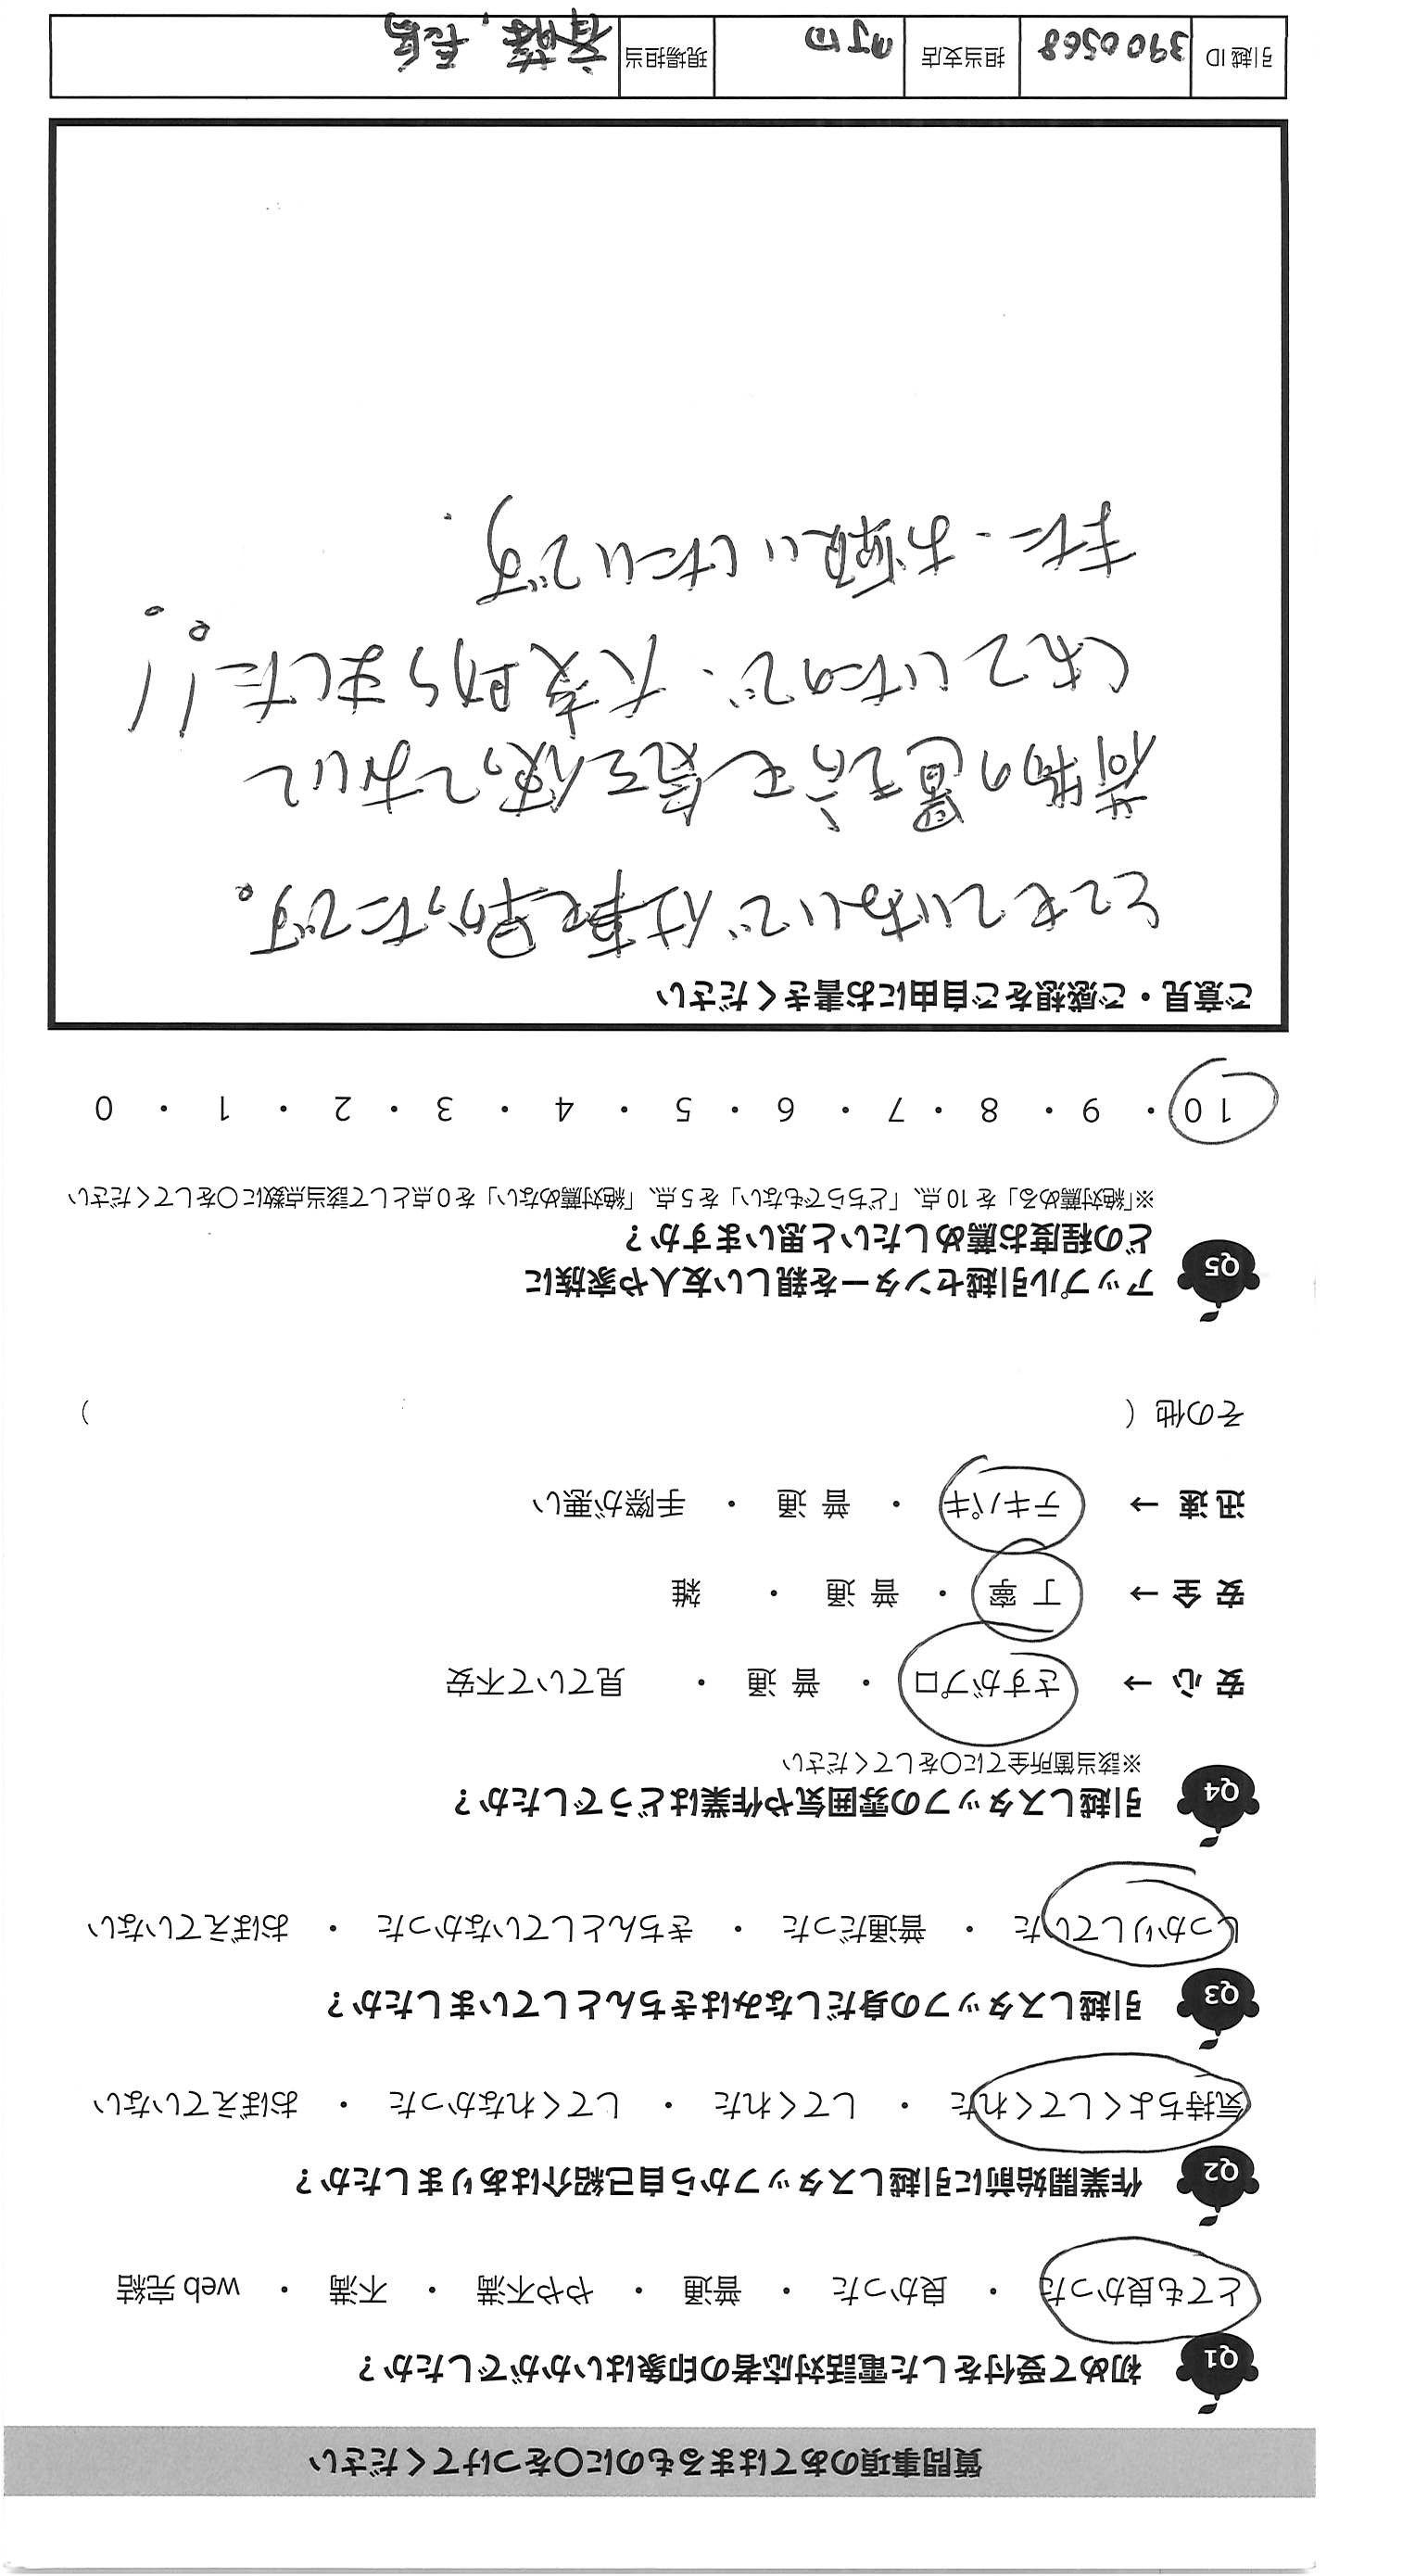 質問事項のあてはまるものに〇をつけてください
Q1 初めて受付をした電話対応者の印象はいかがでしたか？
とても良かった ・ 良かった ・ 普通 ・ やや不満 ・ 不満 ・ web 完結
Q2 作業開始前に引越しスタッフから自己紹介はありましたか？
気持ちよくしてくれた ・ してくれた ・ してくれなかった ・ おぼえていない
Q3 引越しスタッフの身だしなみはきちんとしていましたか？
しっかりしていた ・ 普通だった ・ きちんとしていなかった ・ おぼえていない
Q4 引越しスタッフの雰囲気や作業はどうでしたか？
※該当箇所全てに〇をしてください
安 心 → さすがプロ ・ 普 通 ・ 見ていて不安
安 全 → 丁 寧 ・ 普 通 ・ 雑
迅 速 → テキパキ ・ 普 通 ・ 手際が悪い
その他（ ）
Q5 アップル引越センターを親しい友人や家族に
どの程度お薦めしたいと思いますか？
※「絶対薦める」を 10 点、「どちらでもない」を 5 点、「絶対薦めない」を 0 点として該当点数に〇をしてください
10 ・ 9 ・ 8 ・ 7 ・ 6 ・ 5 ・ 4 ・ 3 ・ 2 ・ 1 ・ 0
ご意見・ご感想をご自由にお書きください
とてもていねいで仕事も早かったです。
荷物の置き方も気を使っておいて
くれていたので、大変助りました!!
また、お願いしたいです.
引越 ID 3900568 担当支店 町田 現場担当 斉藤, 長島